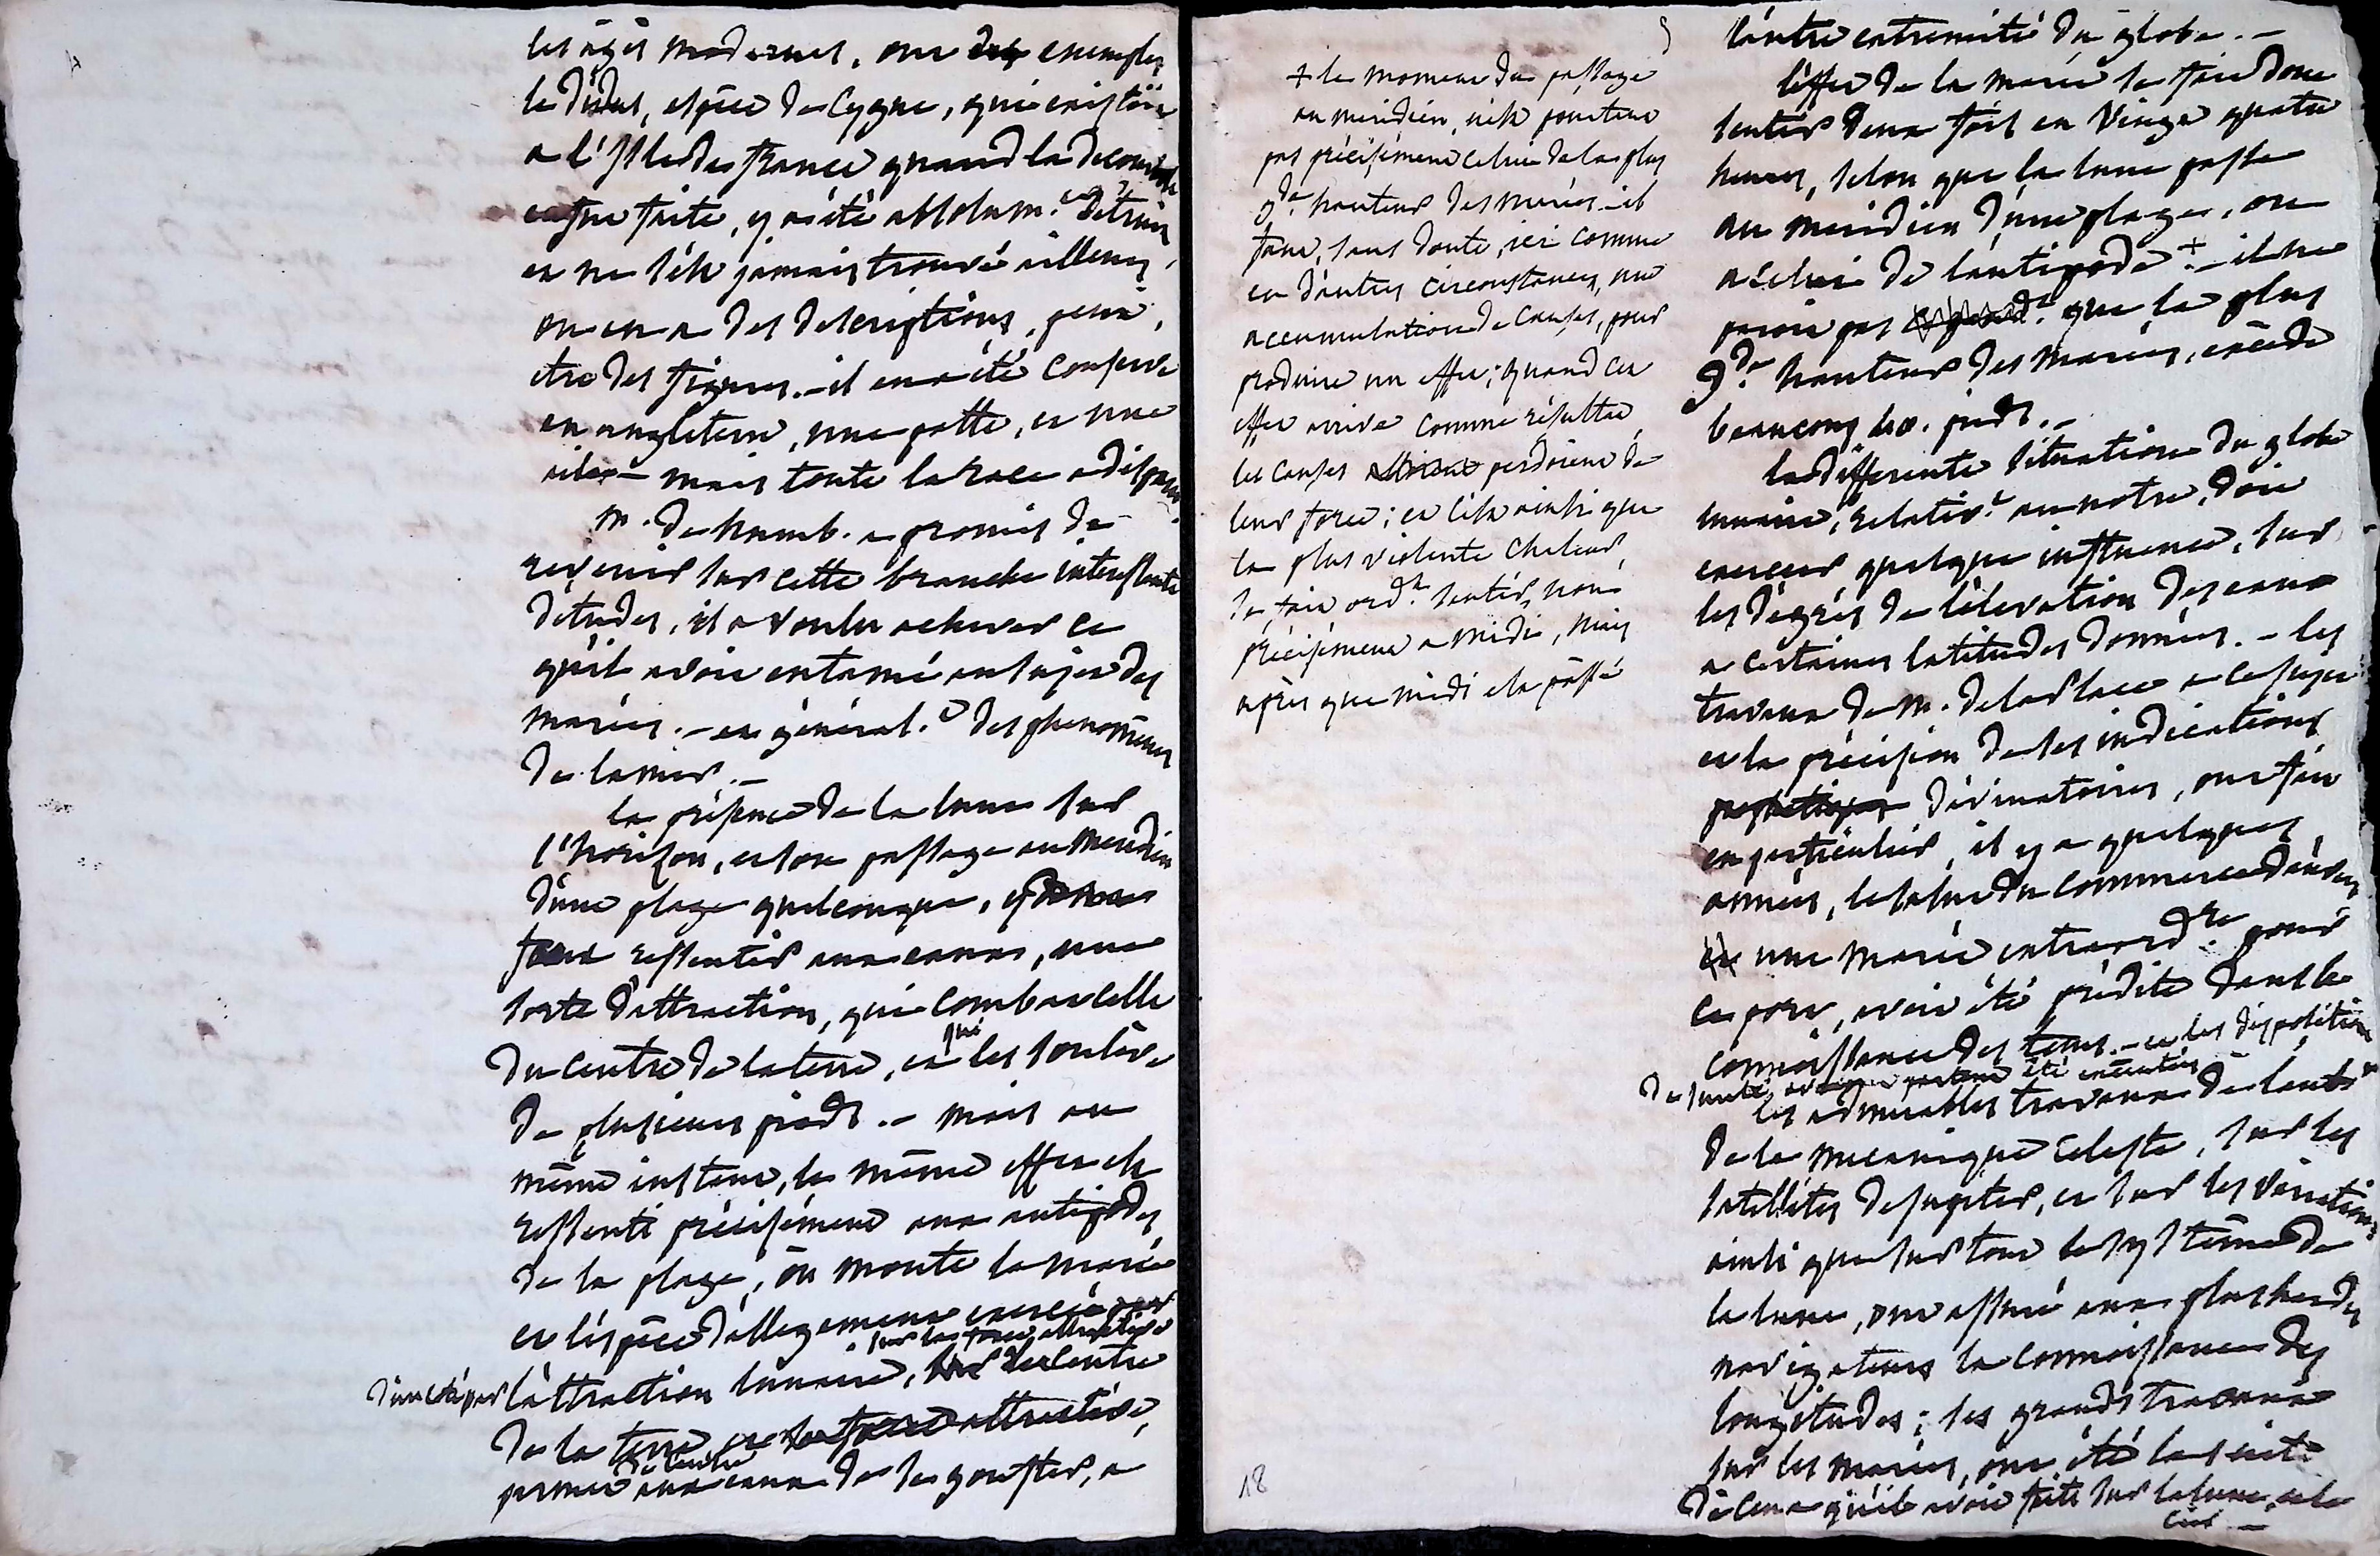 les âges modernes, ont des exemples
le didus, espèce de Cygne, qui existoit
a l'Isle de france quand la decouverte
en fut faite, y a été absolum.t détruit
et ne s'est jamais trouvé ailleurs,
on en a des descriptions, peut
etre des figures. – il en a été conservé
en angleterre, une patte, et une
aile – mais toute la race a disparu.
M. de humb. a promis de
revenir sur cette branche interessante
d'etudes, il a voulu achever ce
qu'il avoit entamé au sujet des
marées. – en général.t des phenomènes
de la mer. –
la présence de la lune sur
l'horizon, et son passage au meridien
d'une plage quelconque,
font ressentir aux eaux, une
sorte d'attraction, qui combat celle
du centre de la terre, et qui les soulève
de plusieurs pieds. – mais au
même instant, le même effet est
ressenti précisément aux antipodes
de la plage, où monte la marée
et l'espèce d'allegement exercé
sur la force attractive
d'un côté par l'attraction lunaire, du centre
de la terre, et la force attractive,
permet aux eaux de se gonfler, a
+ le moment du passage
au meridien, n'est pourtant
pas précisément celui de la plus
g.de hauteur des marées – il
faut, sans doute, ici comme
en d'autres circonstances, une
accumulation de causes, pour
produire un effet; quand cet
effet arrive comme résultat,
les causes perdoient de
leur force; et c'est ainsi que
la plus violente chaleur,
se fait ord.t sentir, non
précisément a midi, mais
après que midi est passé
18
l'autre extremité du globe. –
l'effet de la marée se fait donc
sentir deux fois en vingt quatre
heures, selon que la lune passe
au meridien d'une plage, ou
a celui de l'antipode + – il ne
paroit pas que la plus
g.de hauteur des marées, excède
beaucoup pieds. –
la differente situation du globe
lunaire, relativ.t au notre, doit
exercer quelque influence, sur
les dégrés de l'élevation des eaux
a certaines latitudes données. – les
travaux de M. de la place a ce sujet
et la précision de ses indications
divinatoires, ont fait
en particulier, il y a quelques
années, le salut du commerce d'anvers
une marée extraord.re pour
ce port, avoit été prédite dans la
connoissance des tems. – et les dispositions
de sureté, avoient partout été exécutées –
les admirables travaux de l'aut.r
de la mecanique celeste, sur les
satellites de jupiter, et sur les variations
ainsi que sur tout le système de
la lune, ont assuré aux plus hardis
navigateurs la connoissance des
longitudes; ses grands travaux
sur les marées, ont été la suite
de ceux qu'il avoit faits sur la lune, et le
ciel –